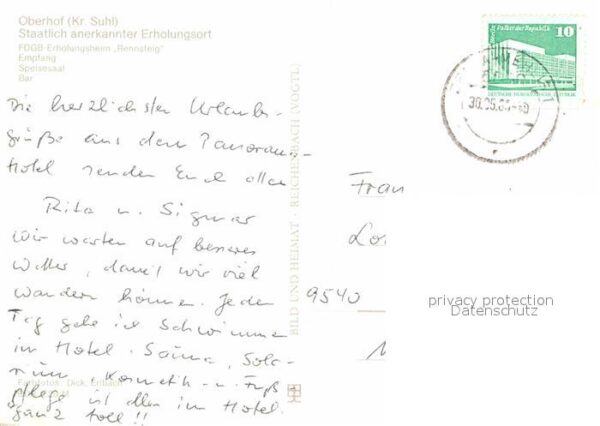 Oberhof (Kr. Suhl)
Staatlich anerkannter Erholungsort
FDGB-Erholungsheim „Rennsteig"
Empfang
Speisesaal
Bar
Berlin Palast der Republik
10
30.05.80
Die herzlichsten Urlaubs-
grüße aus dem Panorama-
Hotel senden Euch allen
Rita u. Sigmar
Wir warten auf besseres
Wetter, damit wir viel
wandern können. Jeden
Tag gehe ich Schwimmen
im Hotel. Sauna, Sola-
rium, Kosmetik u. Fuß-
pflege ist alles im Hotel.
ganz toll!!
Farbfotos: Dick, Erlbach
BILD UND HEIMAT · REICHENBACH (VOGTL)
Frau
9540
privacy protection
Datenschutz